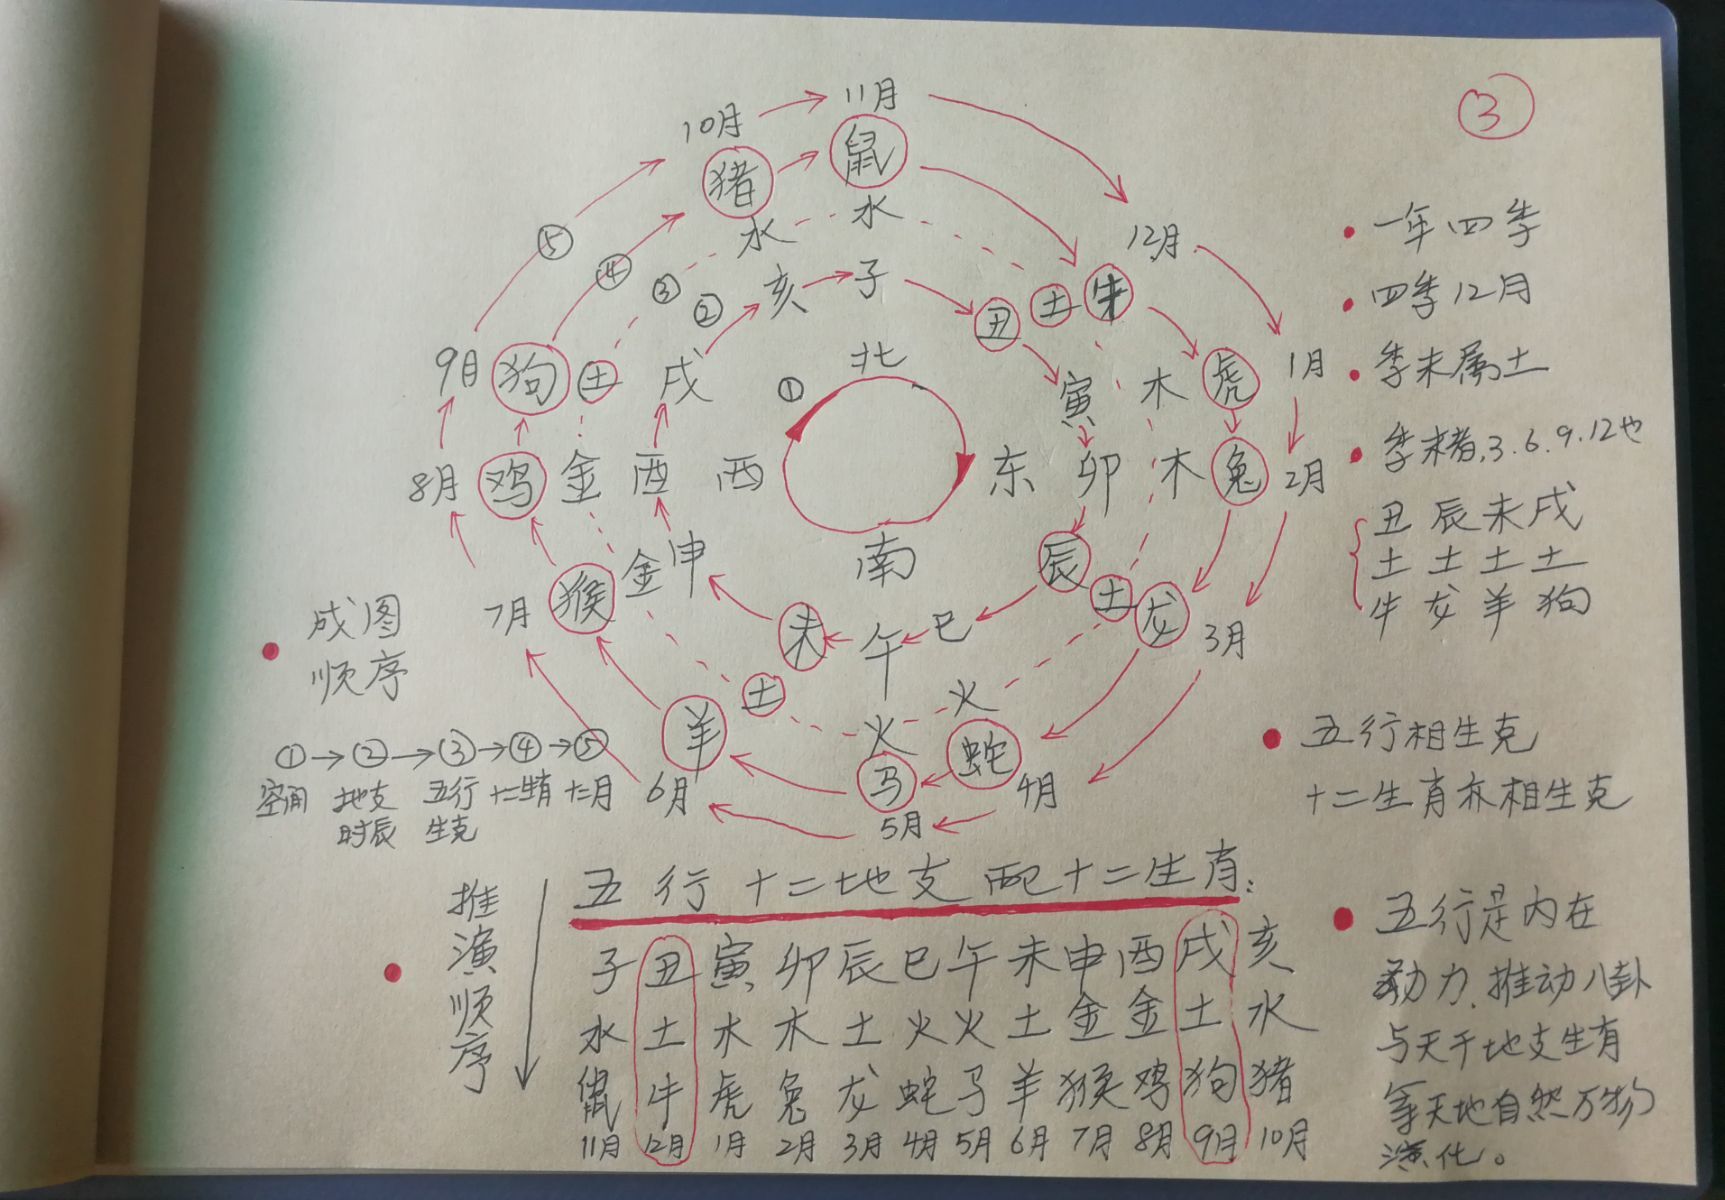 ③
10月 11月
猪 鼠
水 水
⑤ ④ ③ ②
亥 子
12月
丑 土 牛
9月 狗 土 戌
① 北
寅 木 虎 1月
8月 鸡 金 酉 西
东 卯 木 兔 2月
南
7月 猴 金 申
辰 土 龙 3月
未 午 巳
土 火 火
羊 马 蛇
6月 5月 4月
一年四季
四季12月
季末属土
季末者,3.6.9.12也
丑 辰 未 戌
土 土 土 土
牛 龙 羊 狗
成图
顺序
①→②→③→④→⑤
空间 地支 五行 十二生肖 十二月
时辰 生克
五行相生克
十二生肖亦相生克
五行十二地支配十二生肖:
推演顺序
子 丑 寅 卯 辰 巳 午 未 申 酉 戌 亥
水 土 木 木 土 火 火 土 金 金 土 水
鼠 牛 虎 兔 龙 蛇 马 羊 猴 鸡 狗 猪
11月 12月 1月 2月 3月 4月 5月 6月 7月 8月 9月 10月
五行是内在
动力,推动八卦
与天干地支生肖
等天地自然万物
演化。